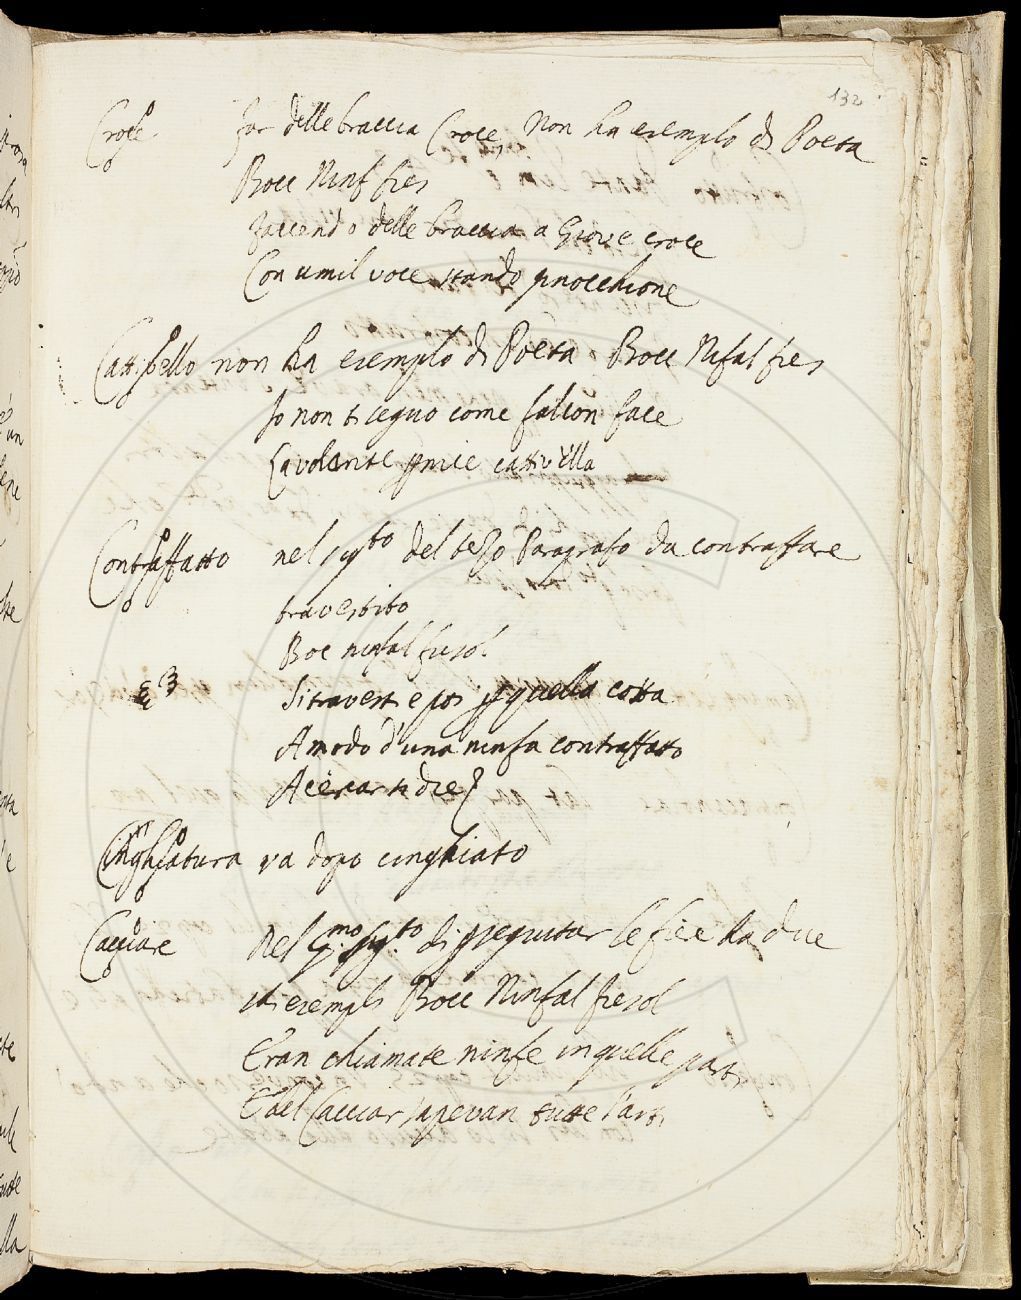 132
Croce. far delle braccia Croce, Non ha esempio di Poeta
Bocc Ninf fies
faccendo delle braccia a Giove croce
Con umil voce stando ginocchione
Cattivello non ha esempio di Poeta. Bocc Nifal fies
Io non ti seguo come falcon face
La volante pernice cattivella
Contraffatto nel sig.to del terzo Paragrafo da contraffare
travestito
Boc ninfal fiesol.
Si travestì e poi quella cotta
A modo d'una ninfa contraffatto
Cinghiatura va dopo cinghiato
Cacciare Nel p.mo sig.to di perseguitar le fiere ha due
esempli Bocc Ninfal fiesol
Eran chiamate ninfe in quelle parti
E del Cacciar sapevan tutte l'arti